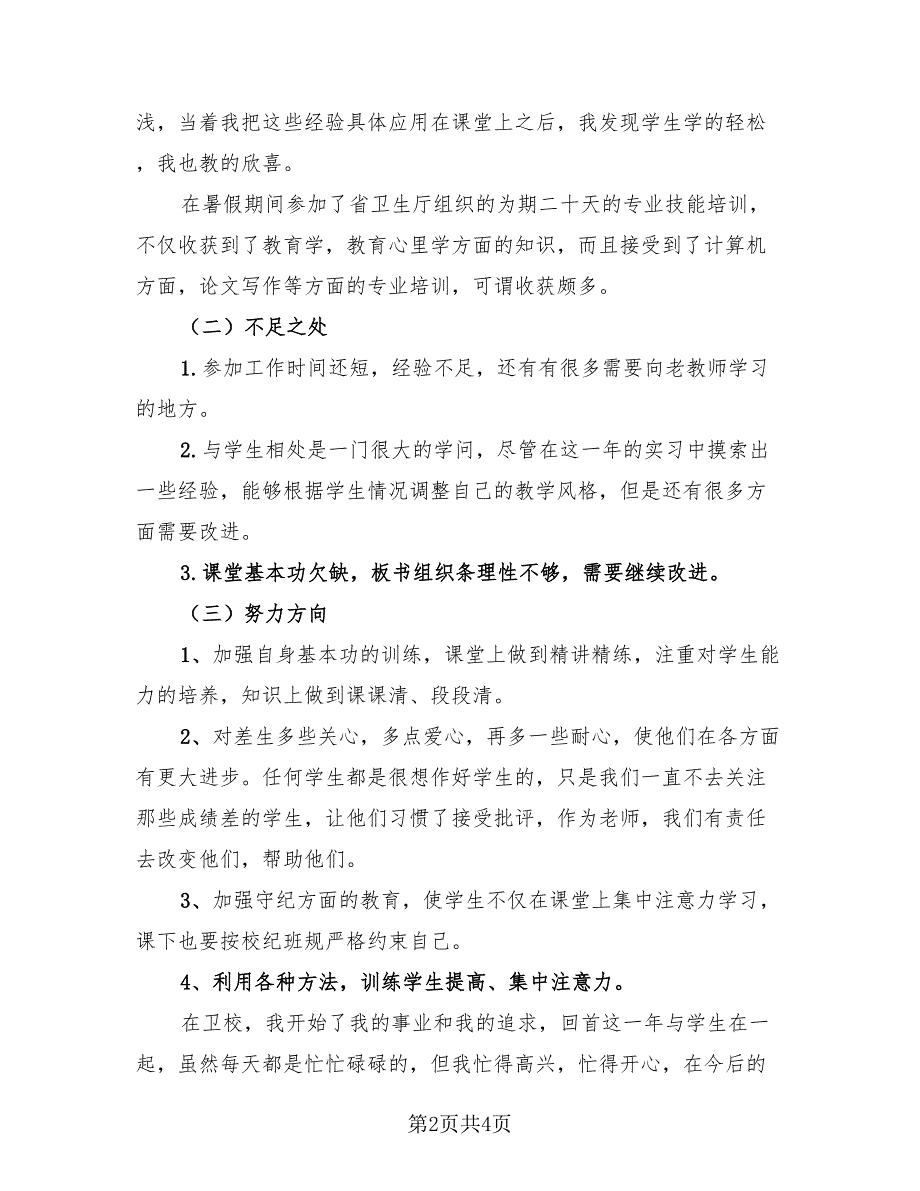 浅，当着我把这些经验具体应用在课堂上之后，我发现学生学的轻松
，我也教的欣喜。
在暑假期间参加了省卫生厅组织的为期二十天的专业技能培训，
不仅收获到了教育学，教育心里学方面的知识，而且接受到了计算机
方面，论文写作等方面的专业培训，可谓收获颇多。
（二）不足之处
1.参加工作时间还短，经验不足，还有有很多需要向老教师学习
的地方。
2.与学生相处是一门很大的学问，尽管在这一年的实习中摸索出
一些经验，能够根据学生情况调整自己的教学风格，但是还有很多方
面需要改进。
3.课堂基本功欠缺，板书组织条理性不够，需要继续改进。
（三）努力方向
1、加强自身基本功的训练，课堂上做到精讲精练，注重对学生能
力的培养，知识上做到课课清、段段清。
2、对差生多些关心，多点爱心，再多一些耐心，使他们在各方面
有更大进步。任何学生都是很想作好学生的，只是我们一直不去关注
那些成绩差的学生，让他们习惯了接受批评，作为老师，我们有责任
去改变他们，帮助他们。
3、加强守纪方面的教育，使学生不仅在课堂上集中注意力学习，
课下也要按校纪班规严格约束自己。
4、利用各种方法，训练学生提高、集中注意力。
在卫校，我开始了我的事业和我的追求，回首这一年与学生在一
起，虽然每天都是忙忙碌碌的，但我忙得高兴，忙得开心，在今后的
第2页共4页